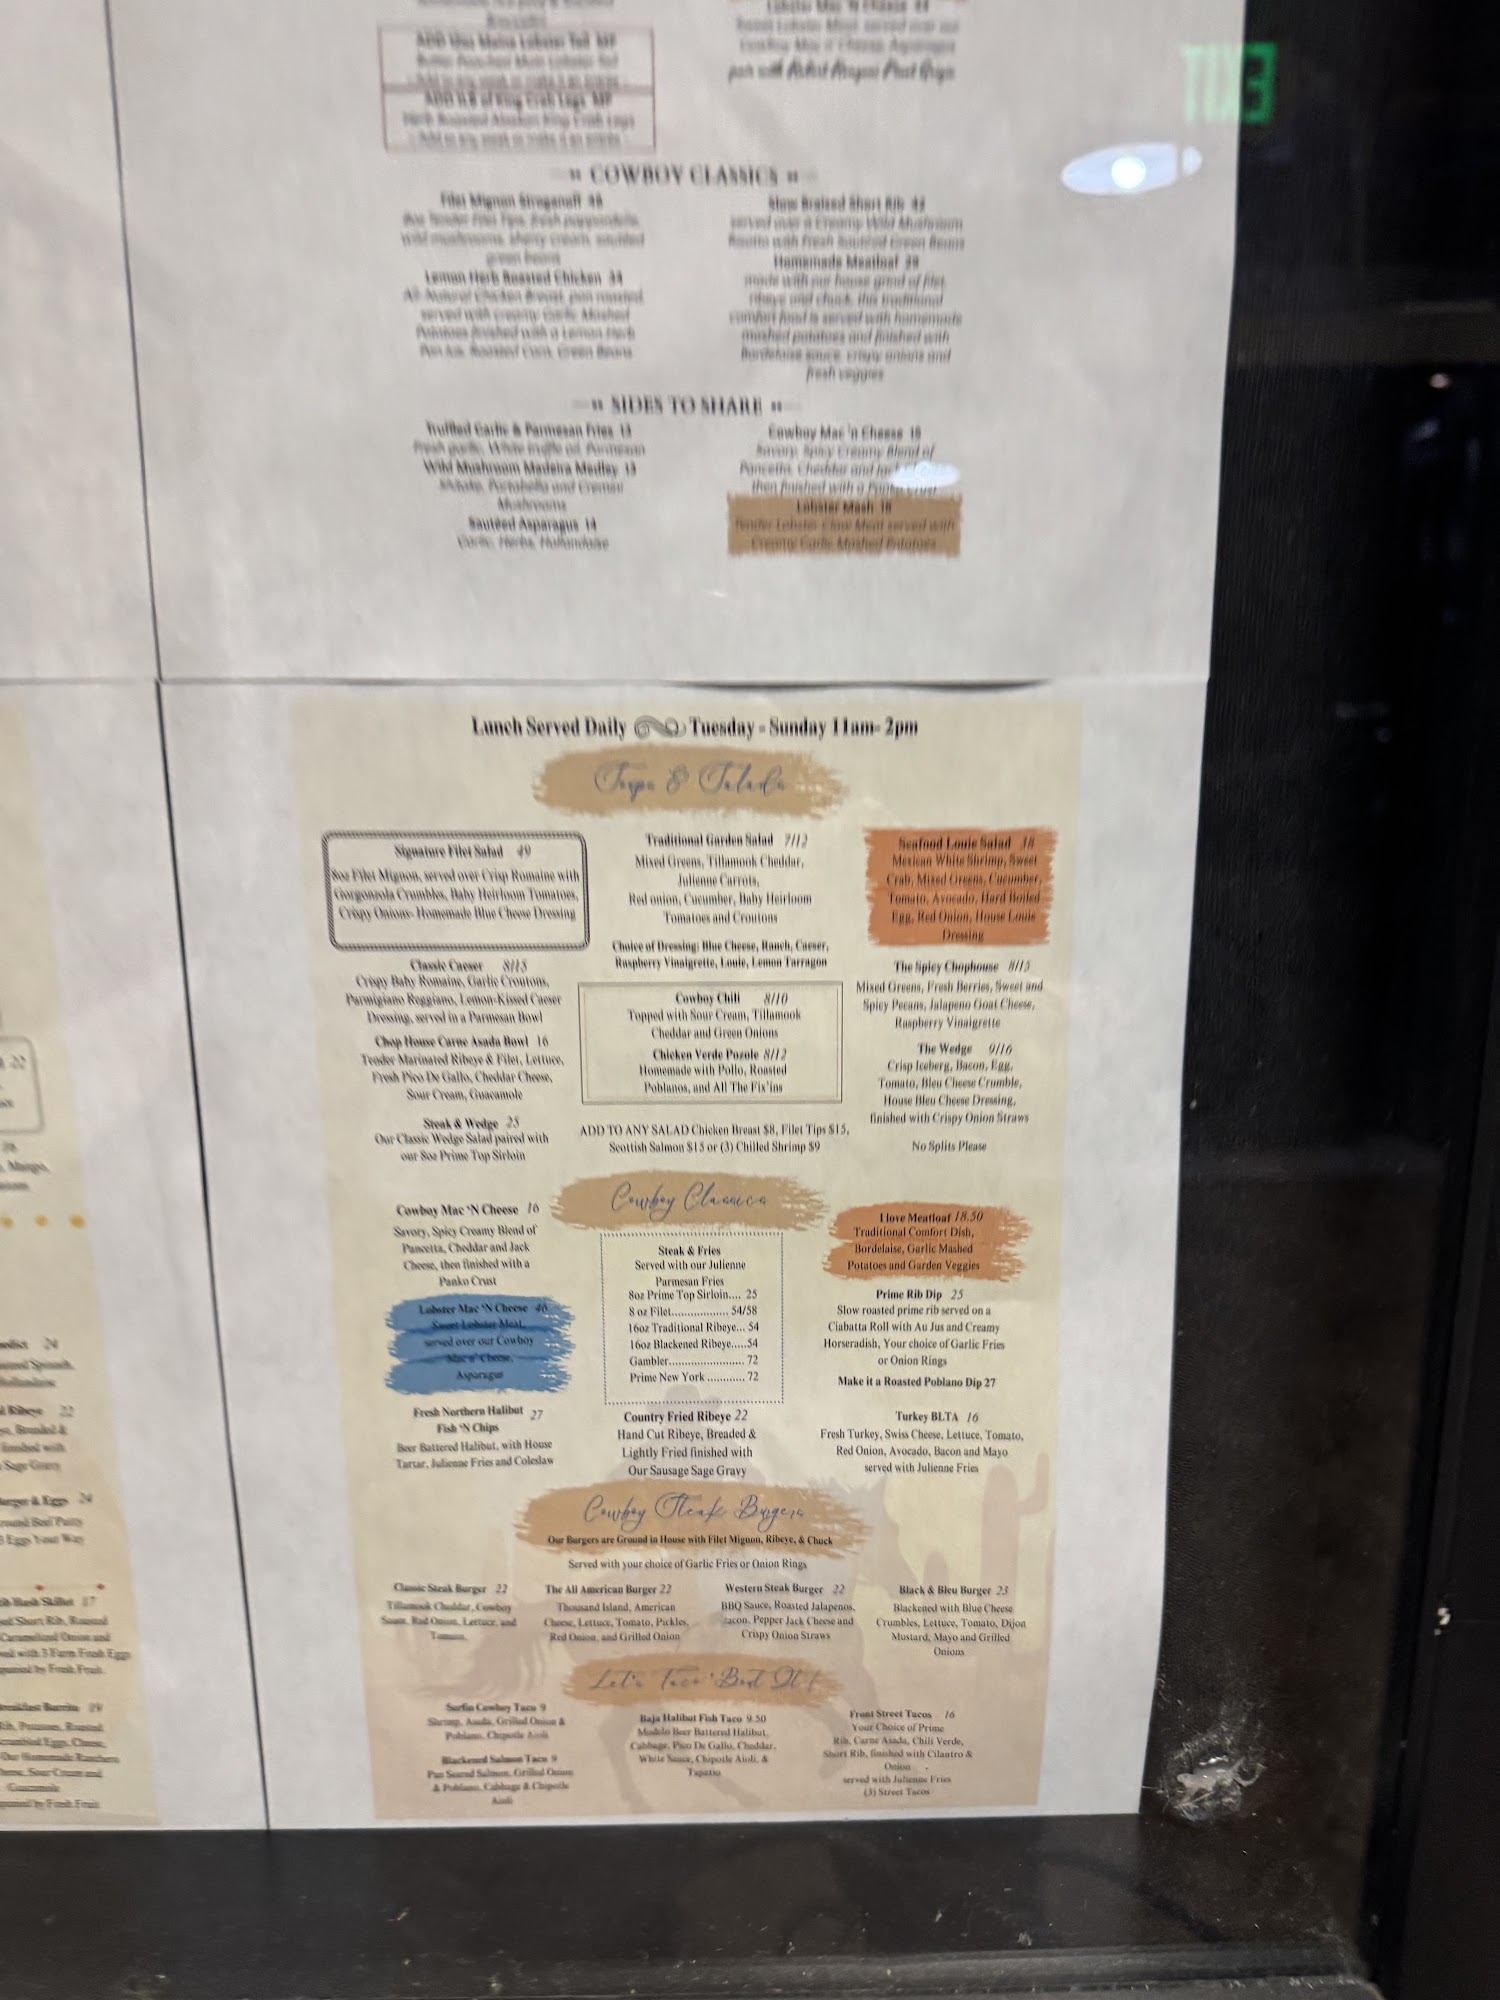 ADD 16oz Maine Lobster Tail MP
Add to any steak or make it an entrée
ADD 1LB of King Crab Legs MP
Herb Roasted Alaskan King Crab Legs
Add to any steak or make it an entrée
Lobster Mac 'N Cheese
Sweet Lobster Meat, served over our
Cowboy Mac n' Cheese, Asparagus
pair with
EXIT
COWBOY CLASSICS
Filet Mignon Stroganoff 48
8oz Tender Filet Tips, fresh pappardelle,
wild mushrooms, sherry cream, sautéed
green beans
Lemon Herb Roasted Chicken 34
All-Natural Chicken Breast, pan roasted,
served with creamy Garlic Mashed
Potatoes finished with a Lemon Herb
Pan Jus, Roasted Corn, Green Beans
Slow Braised Short Rib 42
served over a Creamy Wild Mushroom
Risotto with Fresh Sautéed Green Beans
Homemade Meatloaf 39
made with our house grind of filet,
ribeye and chuck, this traditional
comfort food is served with homemade
mashed potatoes and finished with
Bordelaise sauce, crispy onions and
fresh veggies
SIDES TO SHARE
Truffled Garlic & Parmesan Fries 13
Fresh garlic, White truffle oil, Parmesan
Wild Mushroom Madeira Medley 13
Shitake, Portabella and Cremini
Mushrooms
Sautéed Asparagus 14
Garlic, Herbs, Hollandaise
Cowboy Mac 'n Cheese 15
Savory, Spicy Creamy Blend of
Pancetta, Cheddar and
then finished with a Panko Crust
Lobster Mash 18
Tender Lobster Claw Meat served with
Creamy Garlic Mashed Potatoes
Lunch Served Daily Tuesday - Sunday 11am- 2pm
Soups & Salads
Signature Filet Salad 49
8oz Filet Mignon, served over Crisp Romaine with
Gorgonzola Crumbles, Baby Heirloom Tomatoes,
Crispy Onions- Homemade Blue Cheese Dressing
Classic Caeser 8/15
Crispy Baby Romaine, Garlic Croutons,
Parmigiano Reggiano, Lemon-Kissed Caeser
Dressing, served in a Parmesan Bowl
Chop House Carne Asada Bowl 16
Tender Marinated Ribeye & Filet, Lettuce,
Fresh Pico De Gallo, Cheddar Cheese,
Sour Cream, Guacamole
Steak & Wedge 25
Our Classic Wedge Salad paired with
our 8oz Prime Top Sirloin
Traditional Garden Salad 7/12
Mixed Greens, Tillamook Cheddar,
Julienne Carrots,
Red onion, Cucumber, Baby Heirloom
Tomatoes and Croutons
Choice of Dressing: Blue Cheese, Ranch, Caeser,
Raspberry Vinaigrette, Louie, Lemon Tarragon
Cowboy Chili 8/10
Topped with Sour Cream, Tillamook
Cheddar and Green Onions
Chicken Verde Pozole 8/12
Homemade with Pollo, Roasted
Poblanos, and All The Fix'ins
ADD TO ANY SALAD Chicken Breast $8, Filet Tips $15,
Scottish Salmon $15 or (3) Chilled Shrimp $9
Seafood Louie Salad 38
Mexican White Shrimp, Sweet
Crab, Mixed Greens, Cucumber,
Tomato, Avocado, Hard Boiled
Egg, Red Onion, House Louie
Dressing
The Spicy Chophouse 8/15
Mixed Greens, Fresh Berries, Sweet and
Spicy Pecans, Jalapeno Goat Cheese,
Raspberry Vinaigrette
The Wedge 9/16
Crisp Iceberg, Bacon, Egg,
Tomato, Bleu Cheese Crumble,
House Bleu Cheese Dressing,
finished with Crispy Onion Straws
No Splits Please
Cowboy Classics
Cowboy Mac 'N Cheese 16
Savory, Spicy Creamy Blend of
Pancetta, Cheddar and Jack
Cheese, then finished with a
Panko Crust
Lobster Mac 'N Cheese 46
Sweet Lobster Meat,
served over our Cowboy
Mac n' Cheese,
Asparagus
Fresh Northern Halibut 27
Fish 'N Chips
Beer Battered Halibut, with House
Tartar, Julienne Fries and Coleslaw
Steak & Fries
Served with our Julienne
Parmesan Fries
8oz Prime Top Sirloin.... 25
8 oz Filet.................. 54/58
16oz Traditional Ribeye... 54
16oz Blackened Ribeye.....54
Gambler........................ 72
Prime New York ............ 72
Country Fried Ribeye 22
Hand Cut Ribeye, Breaded &
Lightly Fried finished with
Our Sausage Sage Gravy
I love Meatloaf 18.50
Traditional Comfort Dish,
Bordelaise, Garlic Mashed
Potatoes and Garden Veggies
Prime Rib Dip 25
Slow roasted prime rib served on a
Ciabatta Roll with Au Jus and Creamy
Horseradish, Your choice of Garlic Fries
or Onion Rings
Make it a Roasted Poblano Dip 27
Turkey BLTA 16
Fresh Turkey, Swiss Cheese, Lettuce, Tomato,
Red Onion, Avocado, Bacon and Mayo
served with Julienne Fries
Cowboy Steak Burgers
Our Burgers are Ground in House with Filet Mignon, Ribeye, & Chuck
Served with your choice of Garlic Fries or Onion Rings
Classic Steak Burger 22
Tillamook Cheddar, Cowboy
Sauce, Red Onion, Lettuce, and
Tomato,
The All American Burger 22
Thousand Island, American
Cheese, Lettuce, Tomato, Pickles,
Red Onion, and Grilled Onion
Western Steak Burger 22
BBQ Sauce, Roasted Jalapenos,
Bacon, Pepper Jack Cheese and
Crispy Onion Straws
Black & Bleu Burger 23
Blackened with Blue Cheese
Crumbles, Lettuce, Tomato, Dijon
Mustard, Mayo and Grilled
Onions
Let's Taco 'Bout It!
Surfin Cowboy Taco 9
Shrimp, Asada, Grilled Onion &
Poblano, Chipotle Aioli
Blackened Salmon Taco 9
Pan Seared Salmon, Grilled Onion
& Poblano, Cabbage & Chipotle
Aioli
Baja Halibut Fish Taco 9.50
Modelo Beer Battered Halibut,
Cabbage, Pico De Gallo, Cheddar,
White Sauce, Chipotle Aioli, &
Tapatio
Front Street Tacos 16
Your Choice of Prime
Rib, Carne Asada, Chili Verde,
Short Rib, finished with Cilantro &
Onion
served with Julienne Fries
(3) Street Tacos
22
Mango,
24
Ribeye 22
Breaded &
finished with
Sage Gravy
Burger & Eggs 24
Ground Beef Patty
Eggs Your Way
Rib Hash Skillet 17
Short Rib, Roasted
Caramelized Onion and
with 3 Farm Fresh Eggs
by Fresh Fruit
Breakfast Burrito 19
Rib, Potatoes, Roasted
Scrambled Eggs, Cheese,
Our Homemade Ranchero
Sour Cream and
Guacamole
by Fresh Fruit